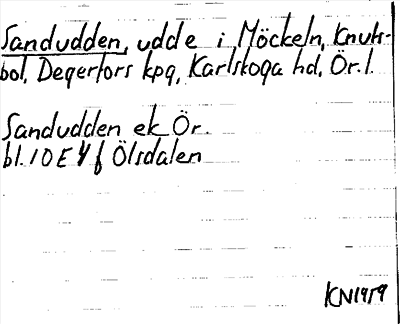 Sandudden, udde i Möckeln, Knuts-
bol, Degerfors kpg, Karlskoga hd, Ör. l.
Sandudden ek Ör.
bl. 10 E 4 f Ölsdalen
KN1959